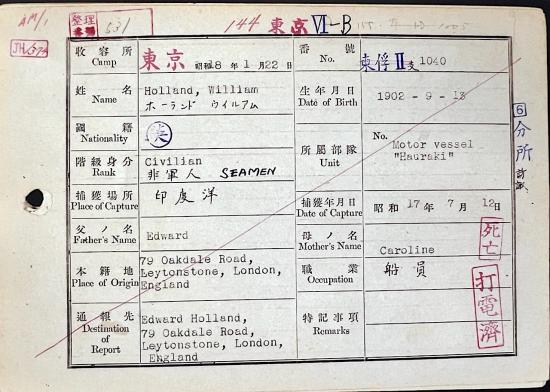 AM/1
整理
番號 531
144 東京 VI-B
収容所 Camp 東京 昭和18年1月22日
番號 No. 東俘 II 支 1040
姓名 Name Holland, William
ホーランド ウイルアム
生年月日 Date of Birth 1902 - 9 - 13
國籍 Nationality 英
所屬部隊 Unit No. Motor vessel
"Hauraki"
階級身分 Rank Civilian
非軍人 SEAMEN
捕獲場所 Place of Capture 印度洋
捕獲年月日 Date of Capture 昭和 17年 7月 12日
父ノ名 Father's Name Edward
母ノ名 Mother's Name Caroline
死亡
本籍地 Place of Origin 79 Oakdale Road,
Leytonstone, London,
England
職業 Occupation 船員
打電濟
通報先 Destination of Report Edward Holland,
79 Oakdale Road,
Leytonstone, London,
England
特記事項 Remarks
6 分所